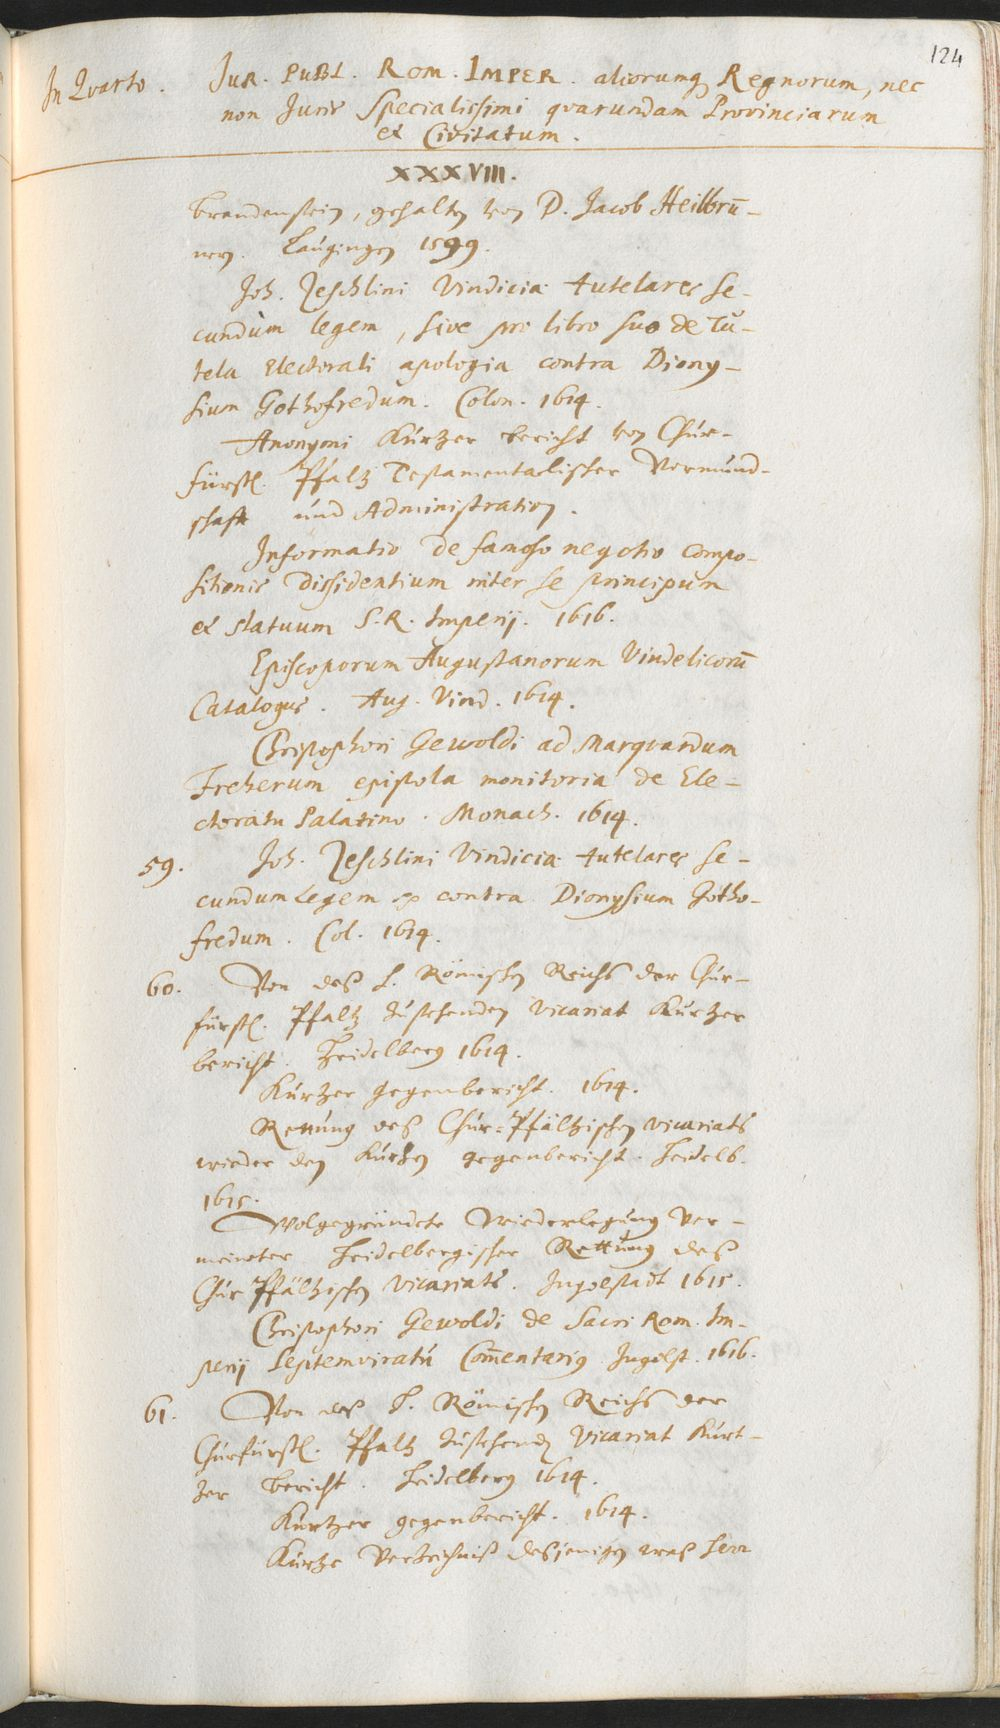 124
In Quarto. JUR. PUBL. ROM. IMPER. aliorumq Regnorum, nec
non Juris Specialissimi quarundam Provinciarum
et Civitatum.
XXXVIII.
brandenstein, gehalten von D. Jacob Heilbrū-
nern. Laugingen 1599.
Joh. Zeschlini Vindicia tutelares se-
cundùm legem, sive pro libro suo de Tu-
tela Electorali apologia contra Diony-
sium Gothofredum. Colon. 1614.
Anonymi Kurtzer bericht von Chur-
fürstl. Pfaltz Testamentarlischer Vormund-
schafft und Administration.
Informatio de famoso negotio compo-
sitionis dissidentium inter se principum
et statuum S. R. Imperij. 1616.
Episcoporum Augustanorum Vindelicorū
Catalogus. Aug. Vind. 1614.
Christophori Gewoldi ad Marquardum
Freherum epistola monitoria de Ele-
ctoratu Palatino. Monach. 1614.
59. Joh. Zeschlini Vindicia tutelares se-
cundum Legem contra Dionysium Gotho-
fredum. Col. 1614.
60. Von deß H. Römischen Reichs der Chur-
fürstl. Pfaltz zustehenden Vicariat Kurtzer
bericht. Heidelberg 1614.
Kurtzer gegenbericht. 1614.
Rettung deß Chur-Pfältzischen vicariats
wieder den Kurtzen gegenbericht. Heidelb.
1615.
Wolgegründete Wiederlegung ver-
meinter Heidelbergischer Rettung deß
Chur Pfältzischen vicariats. Ingolstadt 1615.
Christophori Gewoldi de Sacri Rom. Im-
perij Septemviratu Com̄entarius Ingolst. 1616.
61. Von deß H. Römischen Reichs der
Churfürstl. Pfaltz zustehend Vicariat Kurt-
zer bericht. Heidelberg 1614.
Kurtzer gegenbericht. 1614.
Kurtze Verzeichniß desjenigen waß Herr